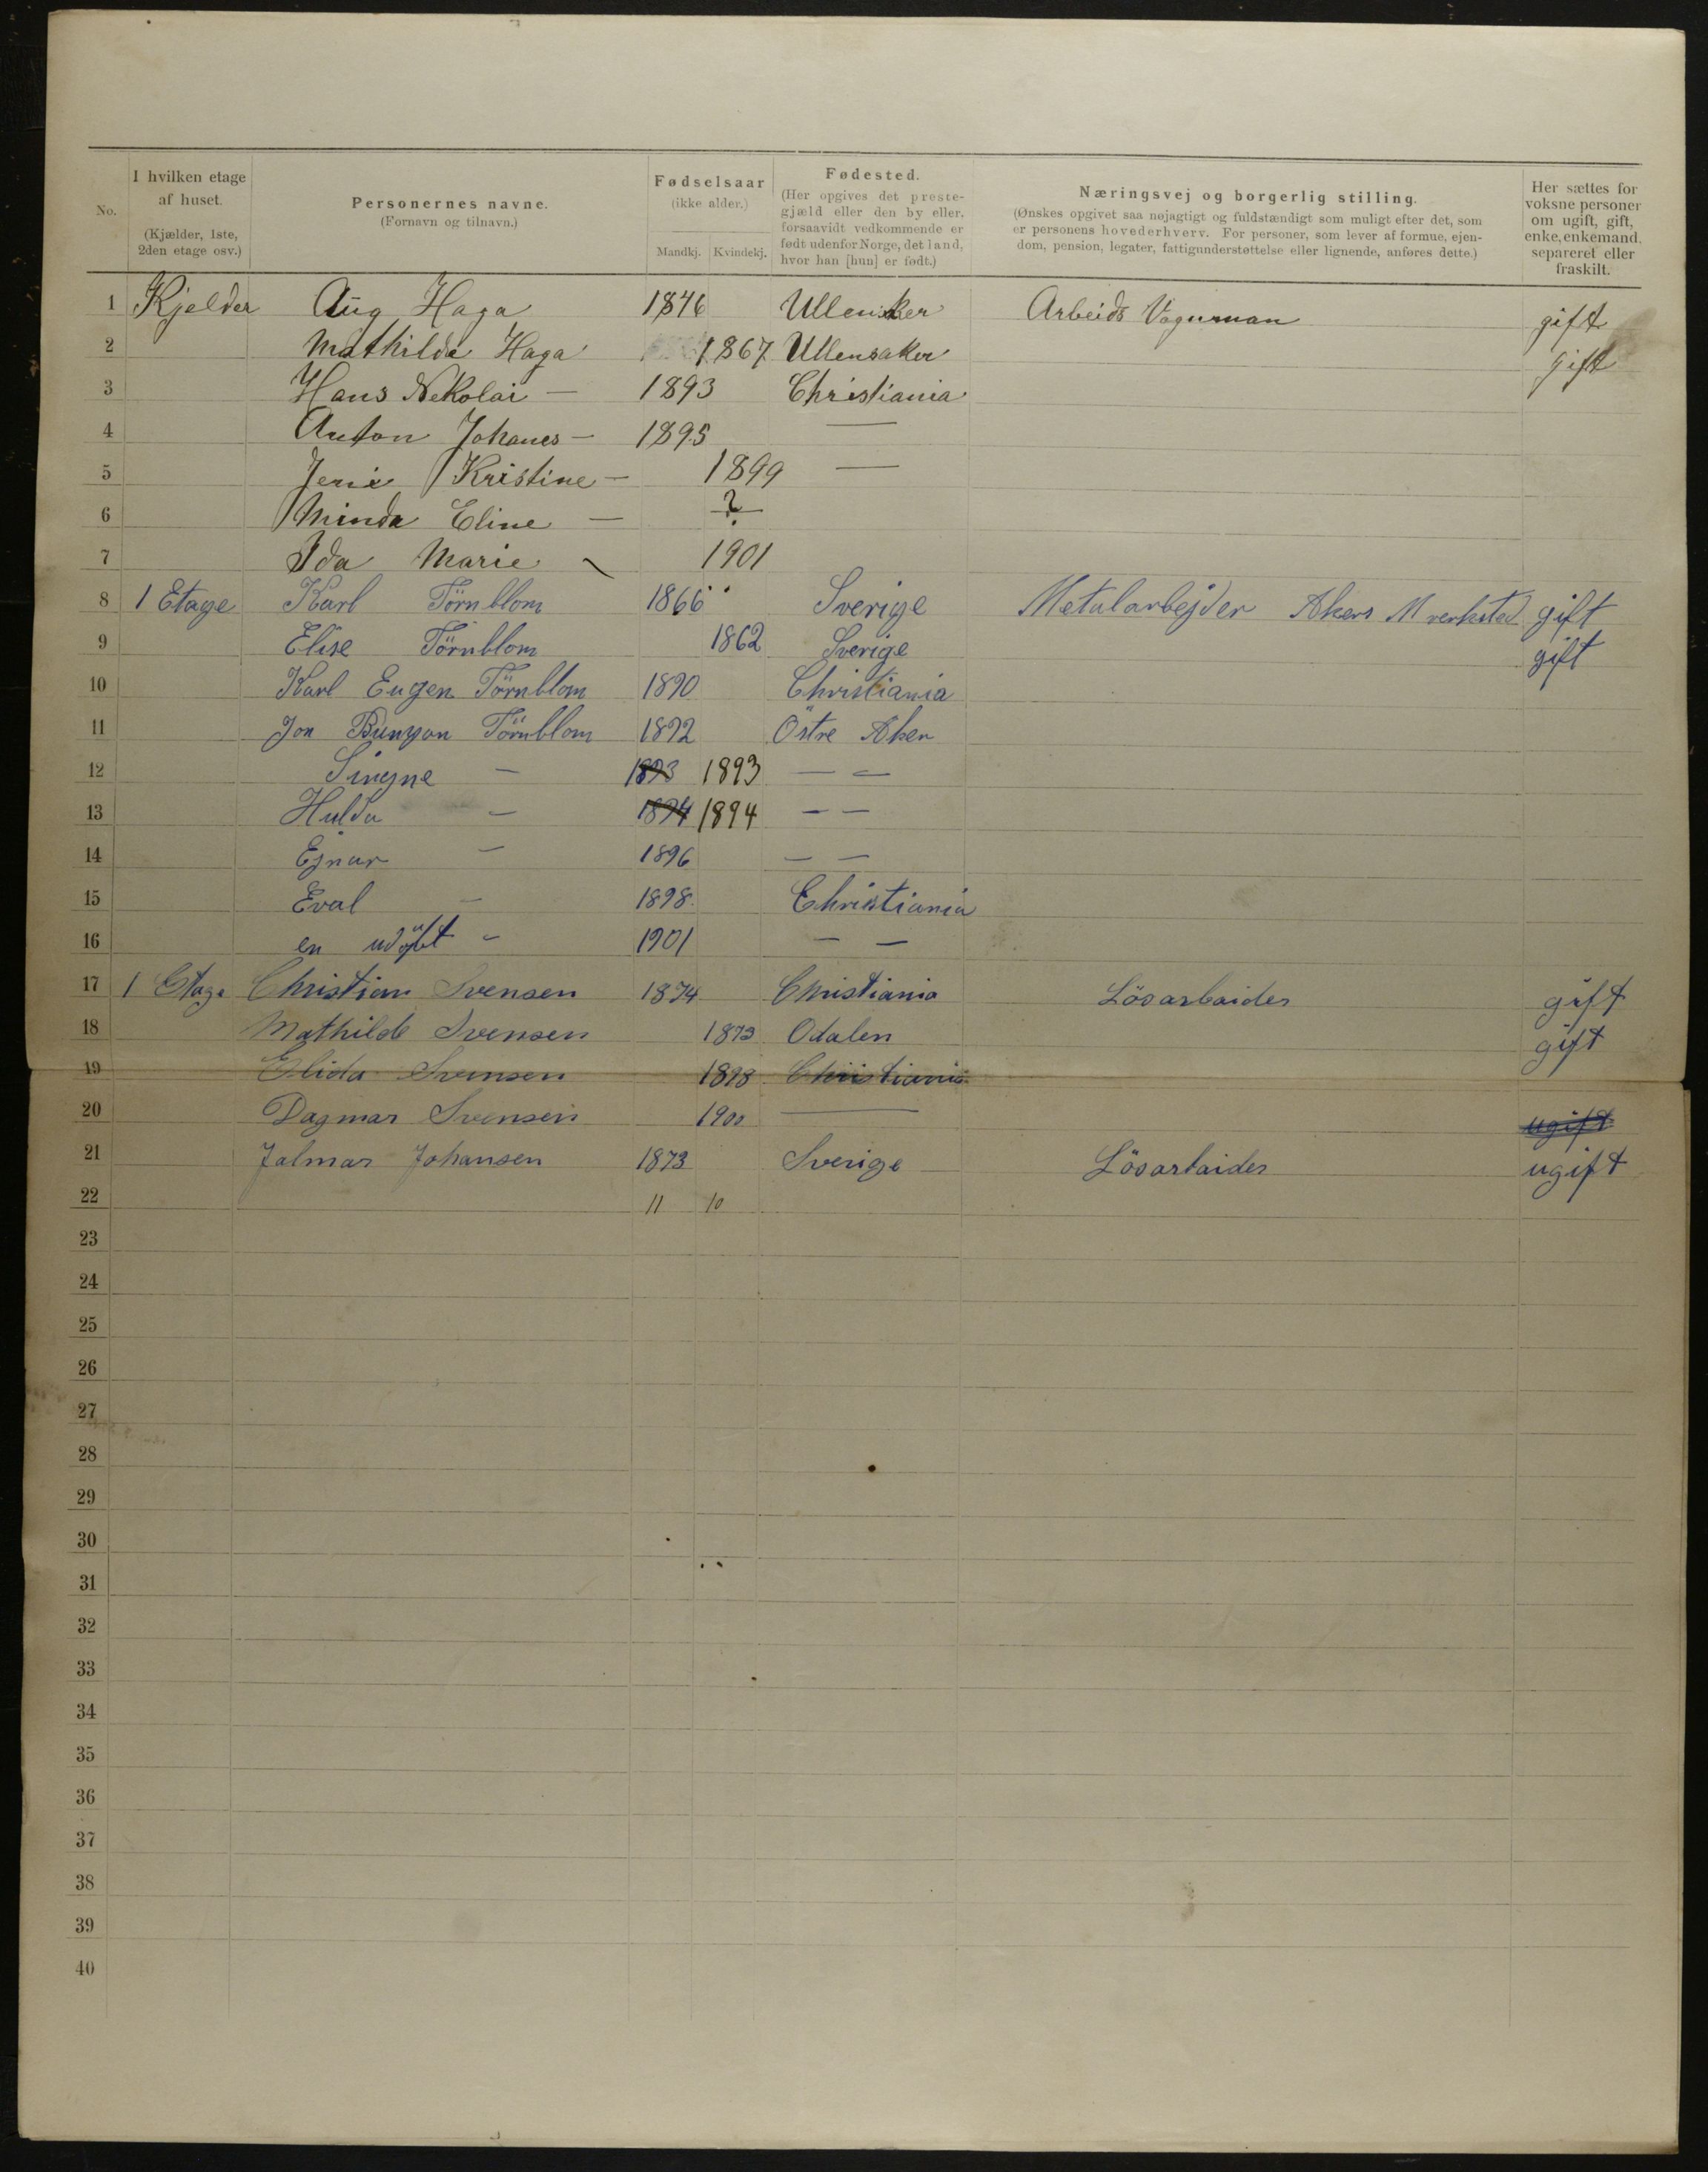 No.
I hvilken etage af huset. (Kjælder, 1ste, 2den etage osv.)
Personernes navne. (Fornavn og tilnavn.)
Fødselsaar (ikke alder.) Mandkj. Kvindekj.
Fødested. (Her opgives det prestegjæld eller den by eller, forsaavidt vedkommende er født udenfor Norge, det land, hvor han [hun] er født.)
Næringsvej og borgerlig stilling. (Ønskes opgivet saa nøjagtigt og fuldstændigt som muligt efter det, som er personens hovederhverv. For personer, som lever af formue, ejendom, pension, legater, fattigunderstøttelse eller lignende, anføres dette.)
Her sættes for voksne personer om ugift, gift, enke, enkemand, separeret eller fraskilt.
1 Kjelder Aug Haga 1846 Ullensker Arbeids Vognman gift
2 Mathilde Haga 1867 Ullensaker gift
3 Hans Nekolai — 1893 Christiania
4 Anton Johanes — 1895 —
5 Jenie Kristine — 1899 —
6 Minda Eline — ?
7 Ida Marie — 1901
8 1 Etage Karl Törnblom 1866 Sverige Metalarbejder Akers M verksted gift
9 Elise Törnblom 1862 Sverige gift
10 Karl Eugen Törnblom 1890 Christiania
11 Jon Bunyan Törnblom 1892 Östre Aker
12 Singne — 1893 1893 — —
13 Hulda — 1894 1894 — —
14 Ejnar — 1896 — —
15 Eval — 1898 Christiania
16 en udöbt — 1901 — —
17 1 Etage Christian Svensen 1874 Christiania Lösarbaider gift
18 Mathilde Svensen 1873 Odalen gift
19 Elida Svensen 1898 Christiania
20 Dagmar Svensen 1900 — ugift
21 Jalmar Johansen 1873 Sverige Lösarbaider ugift
22 11 10
23
24
25
26
27
28
29
30
31
32
33
34
35
36
37
38
39
40